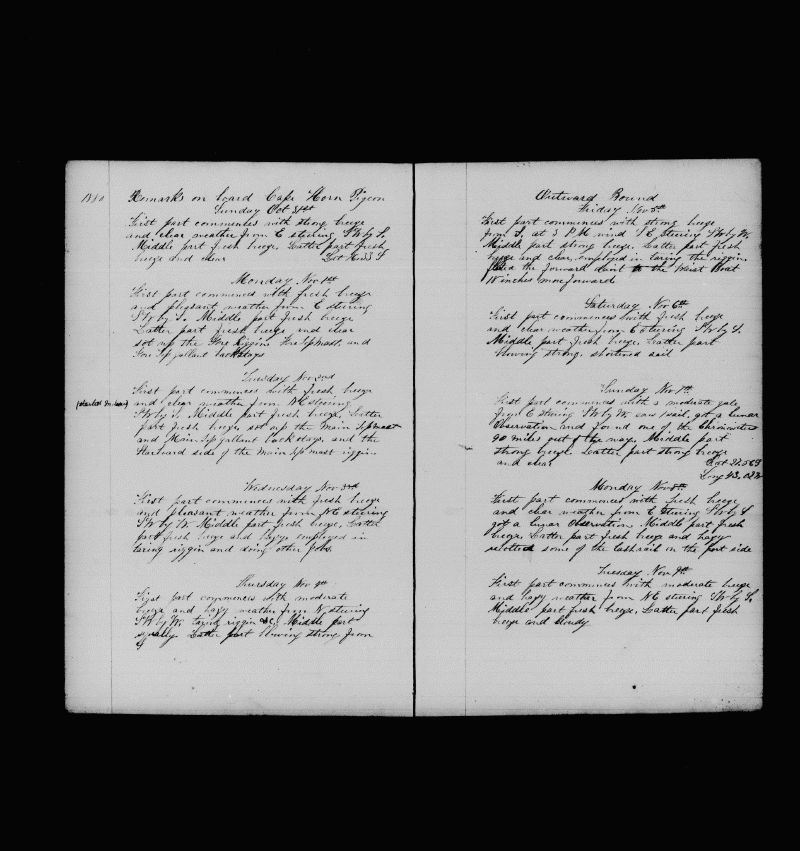 1880
Remarks on board Cape Horn Pigeon
Sunday Oct 31st
First part commences with strong breeze
and clear weather from E steering SW by S.
Middle part fresh breeze, Latter part fresh
breeze and clear
Monday Nov 1st
First part commenced with fresh breeze
and pleasant weather from E steering
SW by S. Middle part fresh breeze
Latter part fresh breeze and clear
set up the Fore Riggin Fore Topmast, and
Fore Top gallant backstays
Tuesday Nov 2nd
First part commences with fresh breeze
and clear weather from NE steering
SW by S. Middle part fresh breeze, Latter
part fresh breeze, set up the Main Topmast
and Main Top gallant backstays, and the
Starboard side of the Main Topmast riggin
Wednesday Nov 3rd
First part commences with fresh breeze
and pleasant weather from NE steering
SW by W. Middle part fresh breeze, Latter
part fresh breeze and hazy, employed in
taring riggin and doing other Jobs.
Thursday Nov 4th
First part commences with moderate
breeze and hazy weather from N steering
SW by W. taring riggin &c, Middle part
squally. Latter part blowing strong from
Outward Bound
Friday Nov 5th
First part commences with strong breeze
from S, at 3 P.M. wind SE Steering SW by W.
Middle part strong breeze. Latter part fresh
breeze and clear, employed in taring the riggin
the forward davit to the Waist Boat
18 inches more forward
Saturday Nov 6th
First part commences with fresh breeze
and clear weather from E steering SW by S.
Middle part fresh breeze. Latter part
blowing strong, shortened sail
Sunday Nov 7th
First part commences with a moderate gale
from E steering SW by W. saw 1 sail, got a Lunar
Observation and found one of the Chronometers
90 miles out of the way. Middle part
strong breeze. Latter part strong breeze
and clear
Monday Nov 8th
First part commences with fresh breeze
and clear weather from E Steering SW by S
got a Lunar Observation, Middle part fresh
breeze. Latter part fresh breeze and hazy
some of the lashrail on the port side
Tuesday Nov 9th
First part commences with moderate breeze
and hazy weather from NE steering SW by S.
Middle part fresh breeze, Latter part fresh
breeze and cloudy